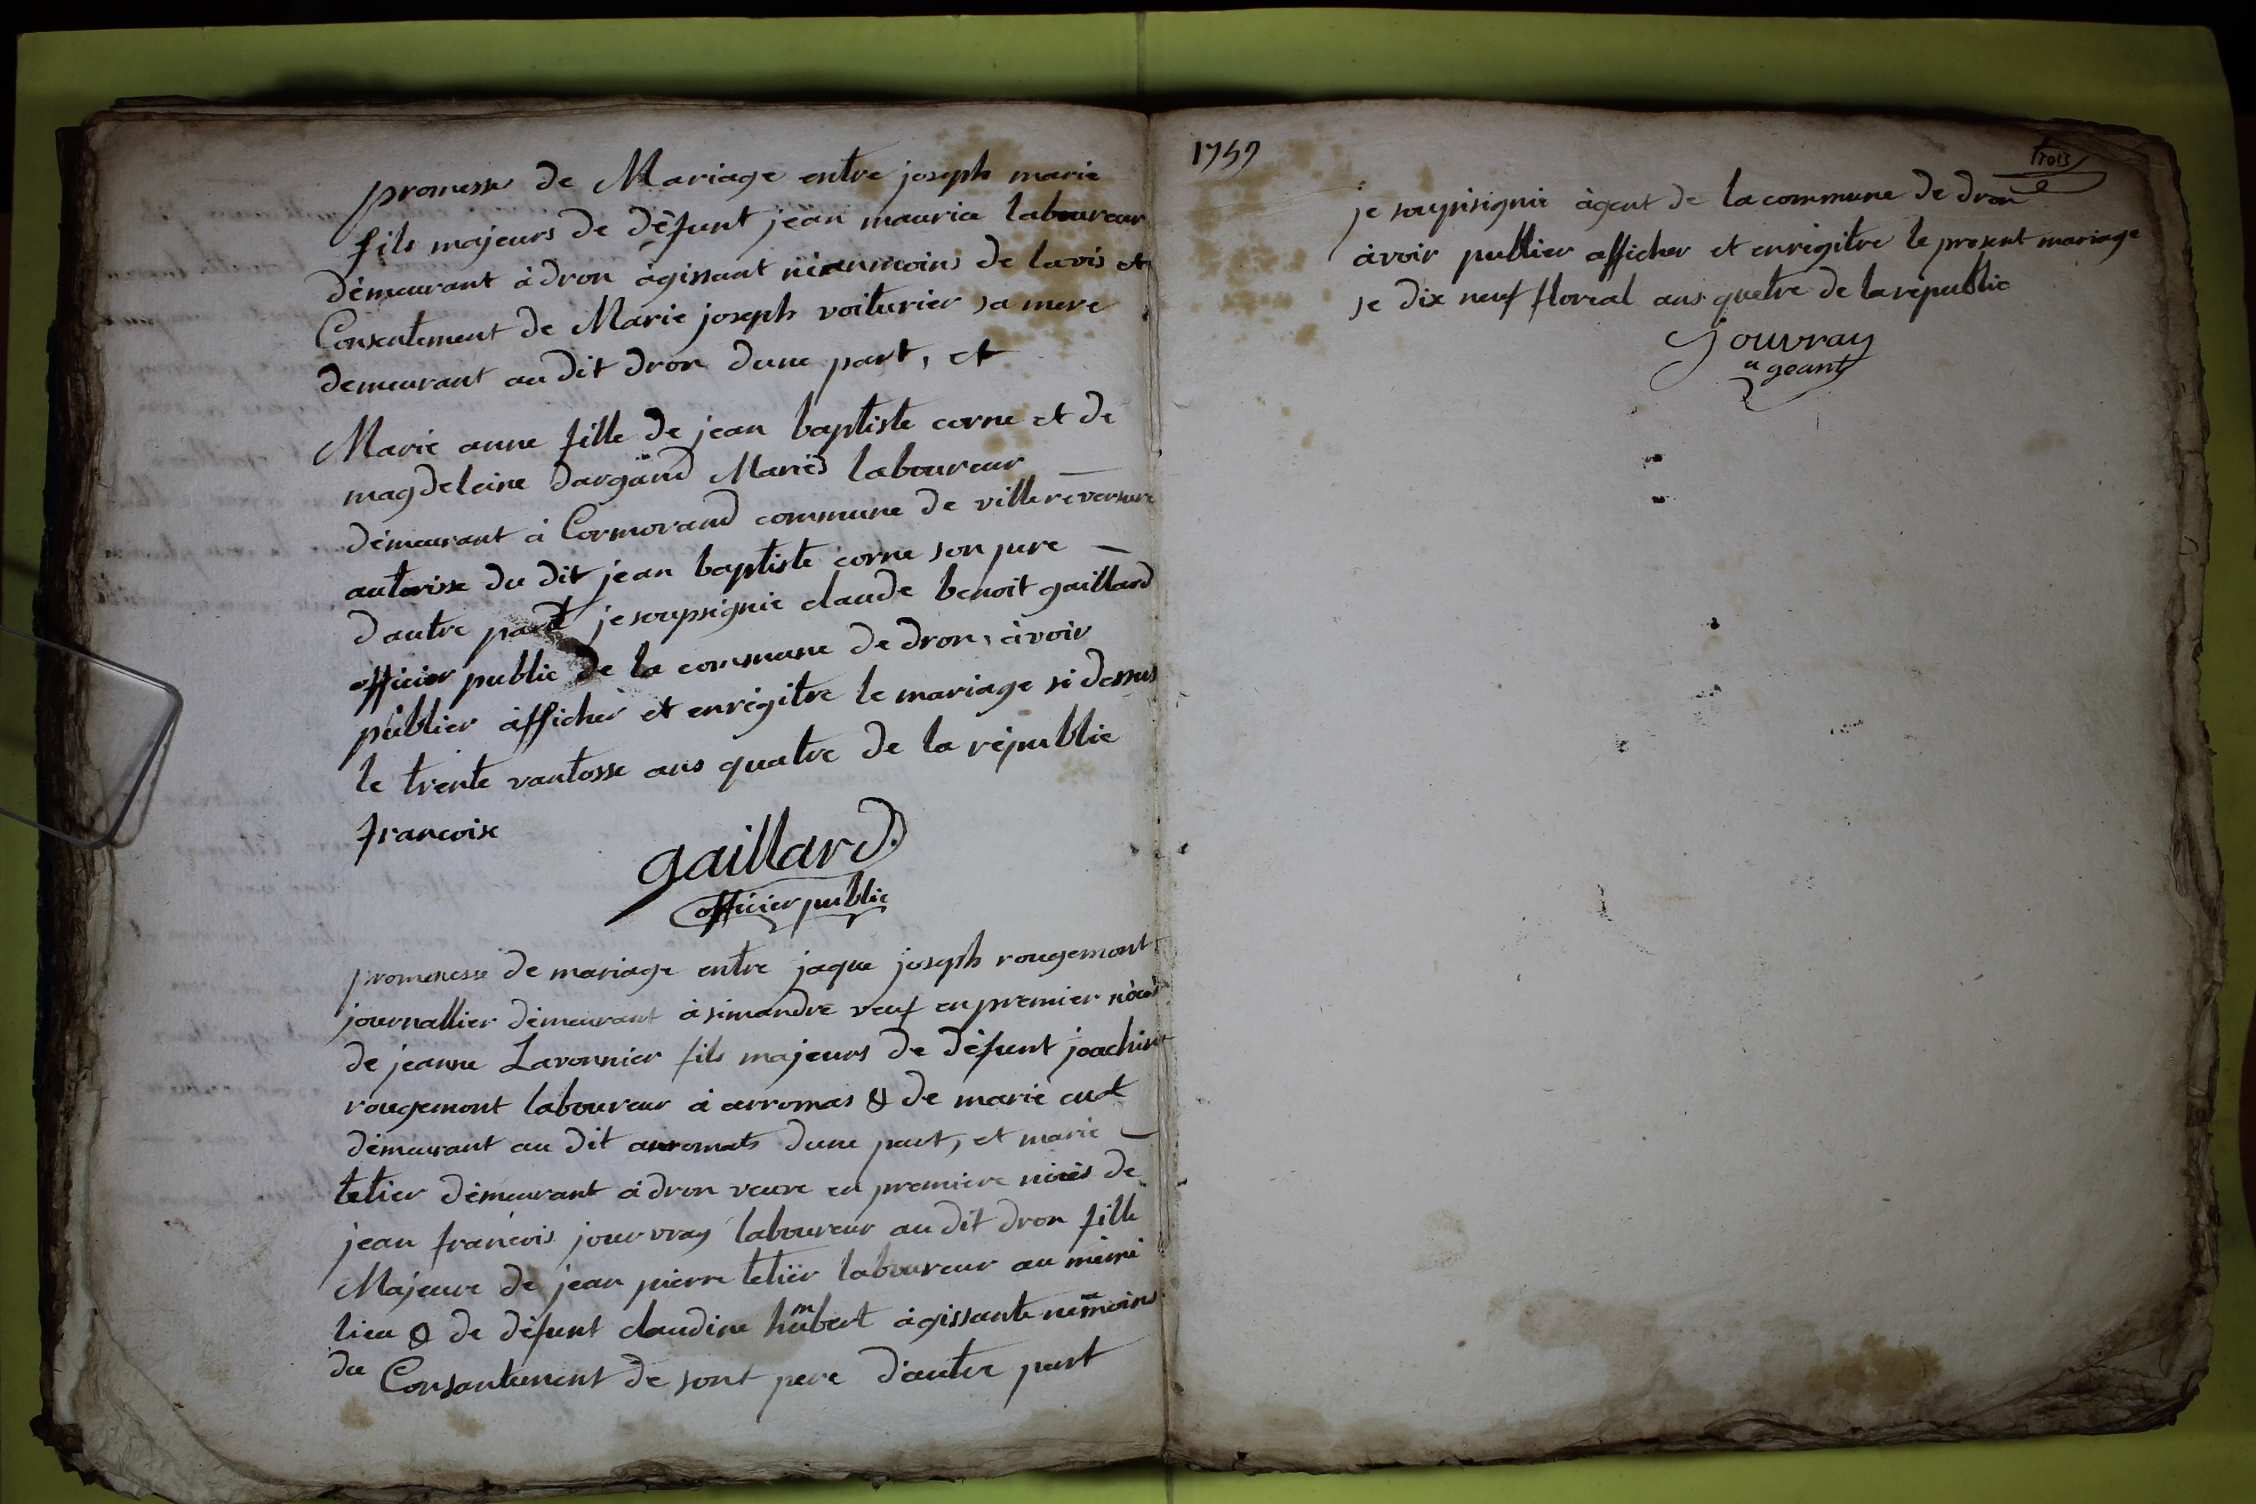 promesse de Mariage entre joseph marie
fils majeurs de dèfunt jean mauria laboureur
dèmeurant à dron àgissant nèanmoins de lavis et
Consentement de Marie joseph voiturier sa mere
demeurant au dit dron dune part, et
Marie anne fille de jean baptiste corne et de
magdeleine dargand Mariès laboureur
dèmeurant à Cormorand commune de villereversure
autorisse du dit jean baptiste corne son pere
dautre part je soupsignie claude benoit gaillard
officier public de la commune de dron, àvoir
publier àfficher et enrègitre le mariage si dessus
le trente vantosse ans quatre de la rèpublic
francoise
gaillard
officier public
promesse de mariage entre jaque joseph rougemont
journallier dèmeurant à simandre veuf en premier nòces
de jeanne Lavonnier fils majeurs de dèfunt joachim
rougemont laboureur à arromas & de marie cudt
dèmeurant au dit arromats dune part, et marie
tetier dèmeurant à dron veuve en premiere noces de
jean francois jouvray laboureur au dit dron fille
Majeure de jean pierre tetier laboureur au mème
lieu & de dèfunt claudine humbert àgissante nèanmoins
du Consantement de sont pere dautre part
1757
trois
je soupisignie àgent de la commune de dron
àvoir publier afficher et enregitre le present mariage
se dix neuf floreal ans quetre de la rèpublic
jouvray
ageant